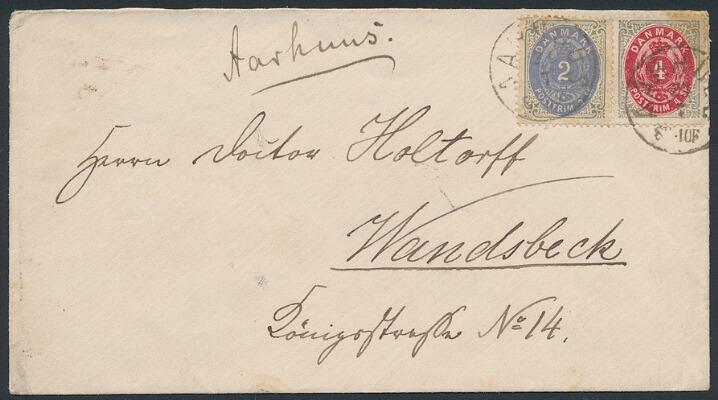 Aarhuus.
DANMARK
2
POSTFRIM
DANMARK
4
POSTFRIM 4 SK
Herrn Doctor Holtorff
Wandsbeck
Königsstrasse No 14.